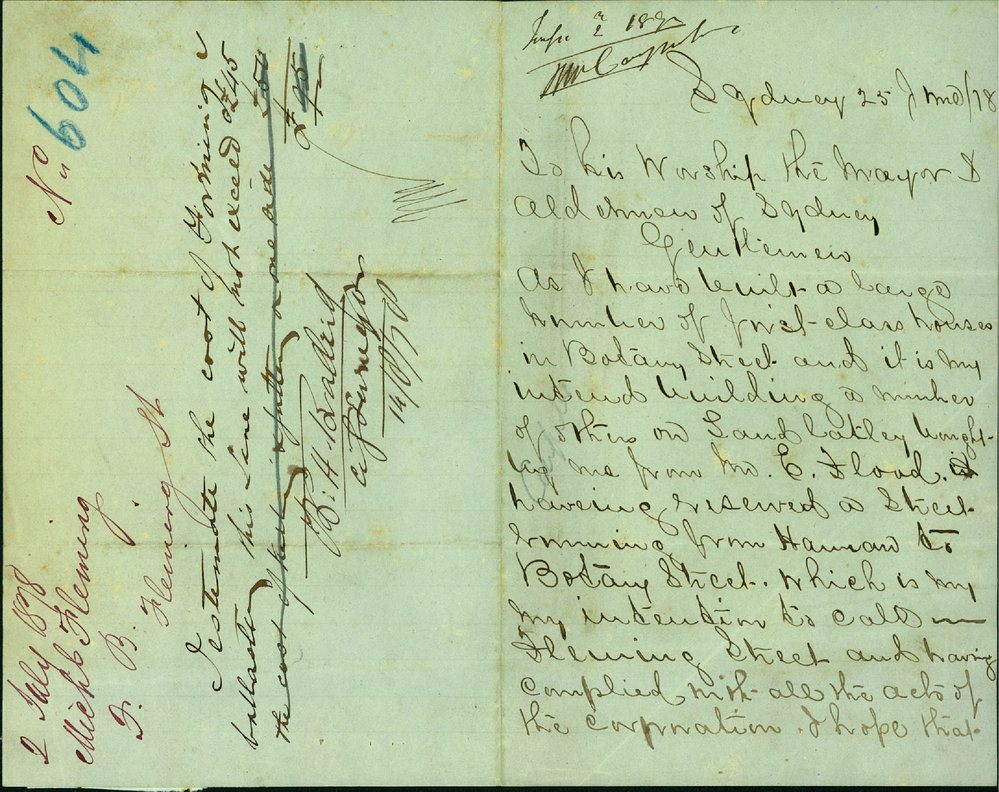 No 604
2 July 1878
Michl Fleming
F. B.
Fleming St
I estimate the cost of Forming &
ballasting this lane will not exceed £45
the cost of kerb & gutter on one side
£45
City Surveyor
14/8/78
Sydney 25 June/78
To his Worship the Mayor &
Aldermen of Sydney
Gentlemen
As I have built a large
number of first-class houses
in Botany Street and it is my
intend building a number
of others on Land latley bought
by me from Mr. E. Flood.
haveing reserved a Street
running from Hannan to
Botany Street. which is my
my intention to call
Fleming Street and having
Complied with all the acts of
the corporation. I hope that